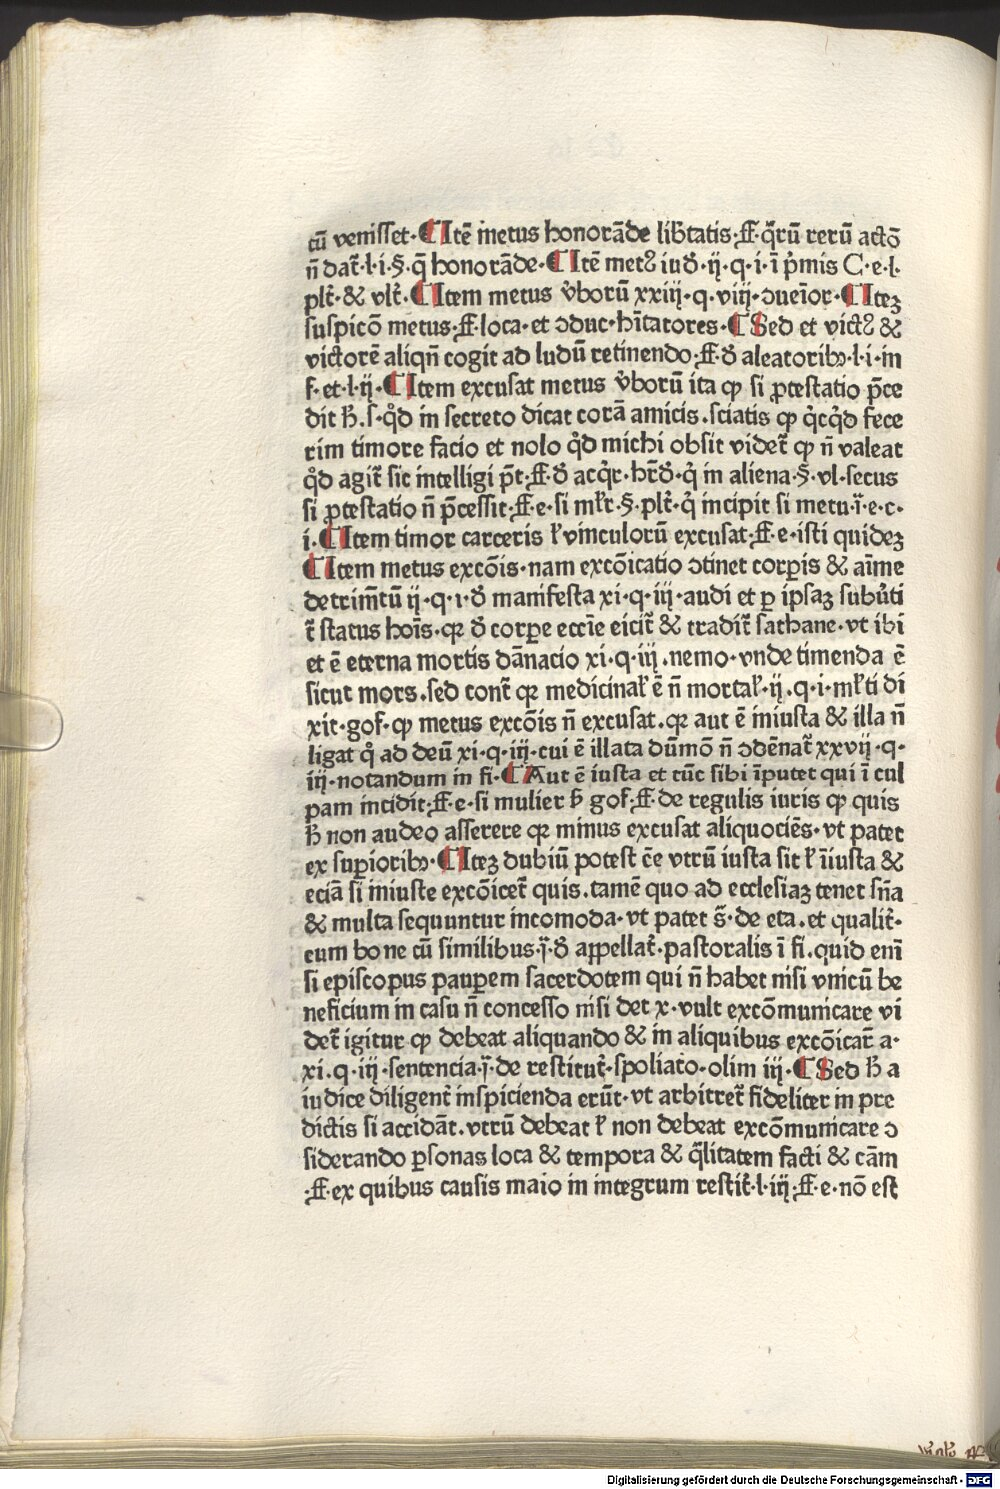 cū venisset·¶Itē metus honorāde lib̄tatis·ff·q̄rū rerū actō
n̄ dat̄·l·i·§·q̄ honorāde·¶Itē metꝰ iuđ·ij·q·i·ī p̄mis C·e·l·
plt̄·& vlt̄·¶Item metus v̓borū xxiij·q·viij·ɔueīor·¶Iteꝫ
suspicō metus·ff·loca·et ɔduc·hītatores·¶Sed et victꝰ &
victorē aliqn̄ cogit ad ludū retinendo·ff·đ aleatoribꝫ·l·i·in
f·et·l·ij·¶Item excusat metus v̓borū ita ꝙ si ꝓtestatio p̄ce
dit ħ.ſ·q̊d in secreto dicat corā amicis.sciatis ꝙ q̇cq̊d fece
rim timore facio et nolo q̊d michi obsit videt̄ ꝙ n̄ valeat
q̊d agit̄ sic intelligi p̄t·ff·đ acq̇r·hr̄đ·q̇ in aliena·§·vl·secus
si ꝓtestatio n̄ p̄cessit·ff·e·si mlr̄·§·plt̄·q̇ incipit si metu·i̅·e·c·
i·¶Item timor carceris ł vinculorū excusat·ff·e·isti quideꝫ
¶Item metus excōis·nam excōicatio ɔtinet corꝑis & aīme
detrim̄tū ij·q·ı·đ manifesta xi·q·iij·audi et ꝑ ipsaꝫ subū̓ti
t̄ status hoīs·qꝛ đ corꝑe eccīe eicit̄ & tradit̄ sathane·vt ibi
et ē eterna mortis dānacio xi·q·iij.nemo·vnde timenda ē
sicut mors.sed cont̄ qꝛ medicinał ē n̄ mortał·ij.q·i·młti di
xit·gof·ꝙ metus excōis n̄ excusat.qꝛ aut ē iniusta & illa n̄
ligat q̊ ad deū xi·q·iij·cui ē illata dūmō n̄ ɔdēnat̄ xxvij·q·
iij·notandum in fi·¶Aut ē iusta et tūc sibi īputet qui ī cul
pam incidit·ff·e·si mulier ħ gof·ff·de regulis iuris ꝙ quis
ħ non audeo asserere qꝛ minus excusat aliquociēs·vt patet
ex suꝑioribꝫ·¶Iteꝫ dubiū potest eē vtrū iusta sit ł īiusta &
eciā si iniuste excōicet̄ quis.tamē quo ad ecclesiaꝫ tenet sn̄a
& multa sequuntur incomoda·vt patet s̄·de eta.et qualit̄·
cum bone cū similibus·j̄·đ appellat̄·pastoralis ī fi.quid enī
si episcopus pauꝑem sacerdotem qui n̄ habet nisi vnicū be
neficium in casu n̄ concesso nisi det x·vult excōmunicare vi
det̄ igitur ꝙ debeat aliquando & in aliquibus excōicat̄ a·
xi.q·iij·sentencia·j̄·de restitut̄·spoliato·olim iij·¶Sed ħ a
iudice diligent̄ inspicienda erūt·vt arbitret̄ fideliter in pre
dictis si accidāt.vtrū debeat ł non debeat excōmunicare ɔ
siderando ꝑsonas loca & tempora & q̄litatem facti & cām
·ff·ex quibus causis maio in integrum restit̄·l·iij·ff·e·nō est
Digitalisierung gefördert durch die Deutsche Forschungsgemeinschaft - DFG